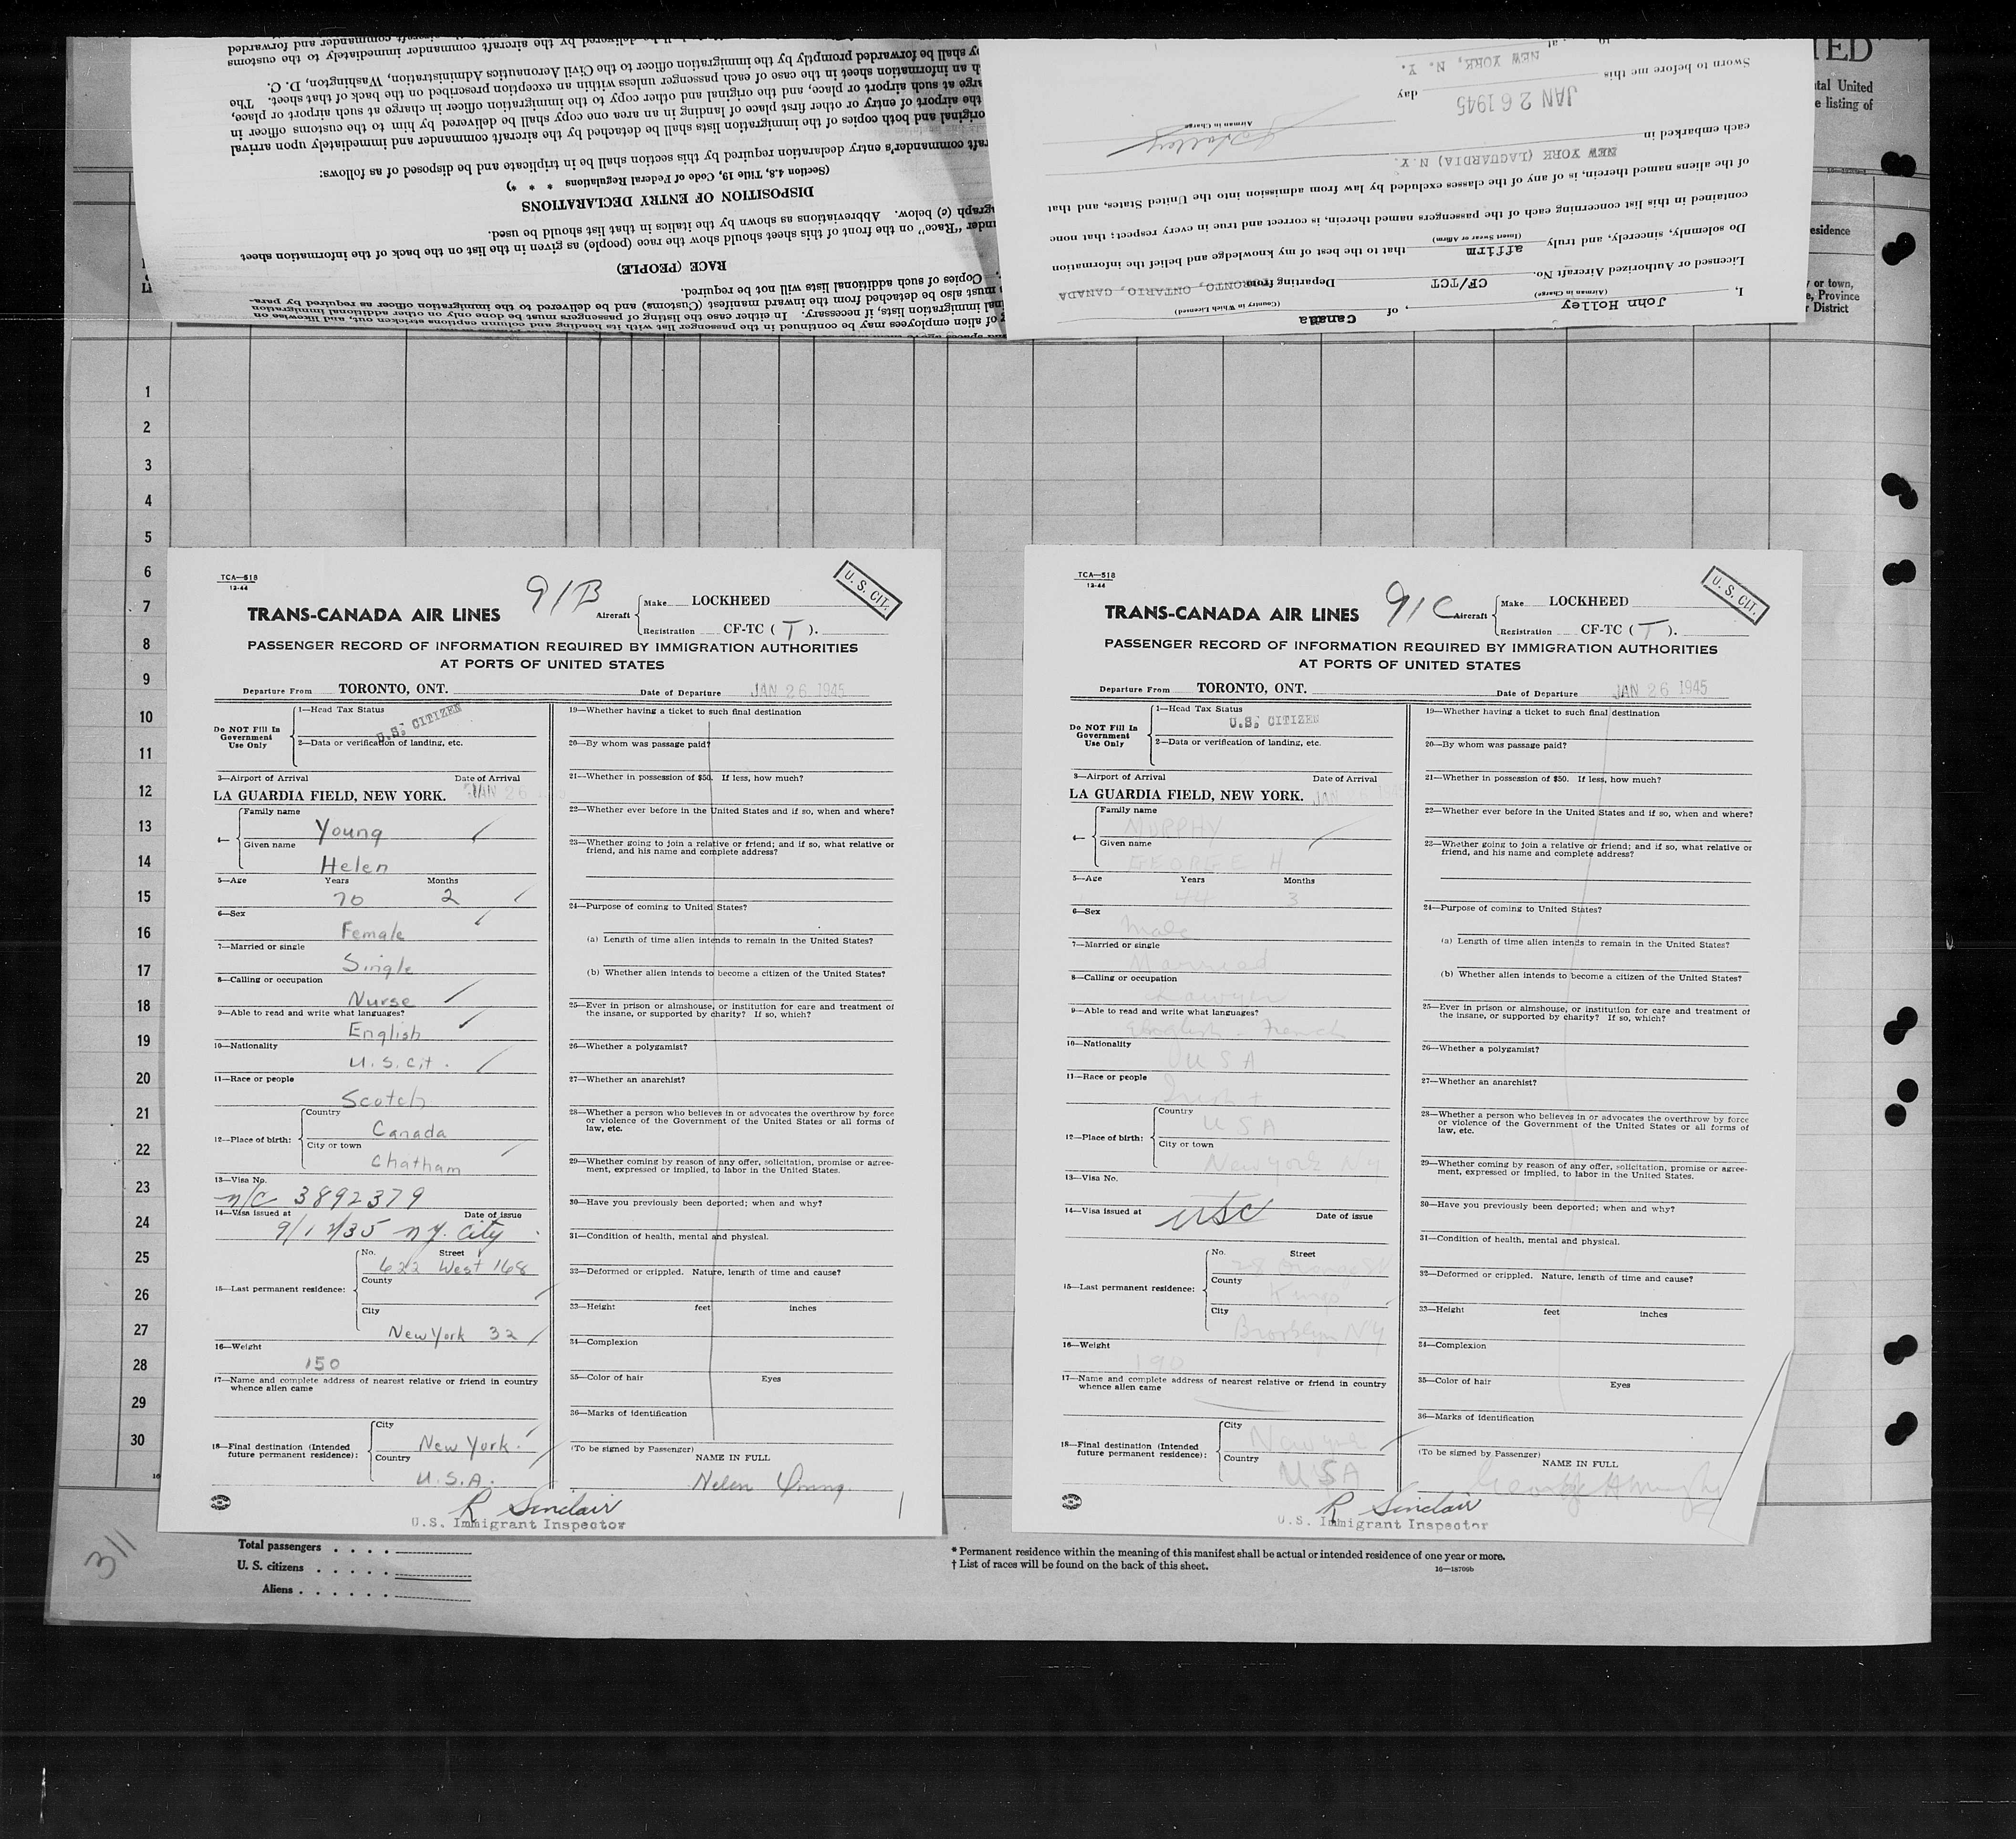 TED
tal United
e listing of
esidence
y or town,
e, Province
r District
of alien employees may be continued in the passenger list with its heading and column captions stricken out, and likewise on
nal immigration lists, if necessary. In either case the listing of passengers must be done only on other additional immigration
must also be detached from the inward manifest (Customs) and be delivered to the immigration officer as required by para-
Copies of such additional lists will not be required.
RACE (PEOPLE)
under "Race" on the front of this sheet should show the race (people) as given in the list on the back of the information sheet
graph (c) below. Abbreviations as shown by the italics in that list should be used.
DISPOSITION OF ENTRY DECLARATIONS
(Section 4.8, Title 19, Code of Federal Regulations * * *)
raft commander's entry declaration required by this section shall be in triplicate and be disposed of as follows:
original and both copies of the immigration lists shall be detached by the aircraft commander and immediately upon arrival
the airport of entry or other first place of landing in an area one copy shall be delivered by him to the customs officer in
arge at such airport or place, and the original and other copy to the immigration officer in charge at such airport or place,
h an information sheet in the case of each passenger unless within an exception prescribed on the back of that sheet. The
y shall be forwarded promptly by the immigration officer to the Civil Aeronautics Administration, Washington, D. C.
be delivered by the aircraft commander immediately to the customs
aircraft commander and forwarded
I, John Holley, of Canada
(Airman in Charge) (Country in Which Licensed)
Licensed or Authorized Aircraft No. CF/TCT Departing from TORONTO, ONTARIO, CANADA
Do solemnly, sincerely, and truly affirm that to the best of my knowledge and belief the information
(Insert Swear or Affirm)
contained in this list concerning each of the passengers named therein, is correct and true in every respect; that none
of the aliens named therein, is of any of the classes excluded by law from admission into the United States, and that
each embarked in NEW YORK (LAGUARDIA) N.Y.
J Holley
Airman in Charge
Sworn to before me this JAN 26 1945 day
NEW YORK, N. Y.
1
2
3
4
5
6
7
8
9
10
11
12
13
14
15
16
17
18
19
20
21
22
23
24
25
26
27
28
29
30
TCA—518
12-44
91B
U. S. CIT.
TRANS-CANADA AIR LINES
Aircraft Make LOCKHEED
Registration CF-TC ( T ).
PASSENGER RECORD OF INFORMATION REQUIRED BY IMMIGRATION AUTHORITIES
AT PORTS OF UNITED STATES
Departure From TORONTO, ONT. Date of Departure JAN 26 1945
Do NOT Fill In
Government
Use Only
1—Head Tax Status
U.S. CITIZEN
2—Data or verification of landing, etc.
3—Airport of Arrival Date of Arrival
LA GUARDIA FIELD, NEW YORK. JAN 26
4—
Family name
Young
Given name
Helen
5—Age Years Months
70 2
6—Sex
Female
7—Married or single
Single
8—Calling or occupation
Nurse
9—Able to read and write what languages?
English
10—Nationality
U.S. Cit.
11—Race or people
Scotch
12—Place of birth:
Country
Canada
City or town
Chatham
13—Visa No.
n/c 3892379
14—Visa issued at Date of issue
9/17/35 N.Y. City
15—Last permanent residence:
No. Street
622 West 168
County
City
New York 32
16—Weight
150
17—Name and complete address of nearest relative or friend in country
whence alien came
18—Final destination (Intended
future permanent residence):
City
New York.
Country
U.S.A.
19—Whether having a ticket to such final destination
20—By whom was passage paid?
21—Whether in possession of $50. If less, how much?
22—Whether ever before in the United States and if so, when and where?
23—Whether going to join a relative or friend; and if so, what relative or
friend, and his name and complete address?
24—Purpose of coming to United States?
(a) Length of time alien intends to remain in the United States?
(b) Whether alien intends to become a citizen of the United States?
25—Ever in prison or almshouse, or institution for care and treatment of
the insane, or supported by charity? If so, which?
26—Whether a polygamist?
27—Whether an anarchist?
28—Whether a person who believes in or advocates the overthrow by force
or violence of the Government of the United States or all forms of
law, etc.
29—Whether coming by reason of any offer, solicitation, promise or agree-
ment, expressed or implied, to labor in the United States.
30—Have you previously been deported; when and why?
31—Condition of health, mental and physical.
32—Deformed or crippled. Nature, length of time and cause?
33—Height feet inches
34—Complexion
35—Color of hair Eyes
36—Marks of identification
(To be signed by Passenger)
NAME IN FULL
Helen Young
R Sinclair
U.S. Immigrant Inspector
TCA—518
12-44
91C
U. S. CIT.
TRANS-CANADA AIR LINES
Aircraft Make LOCKHEED
Registration CF-TC ( T ).
PASSENGER RECORD OF INFORMATION REQUIRED BY IMMIGRATION AUTHORITIES
AT PORTS OF UNITED STATES
Departure From TORONTO, ONT. Date of Departure JAN 26 1945
Do NOT Fill In
Government
Use Only
1—Head Tax Status
U.S. CITIZEN
2—Data or verification of landing, etc.
3—Airport of Arrival Date of Arrival
LA GUARDIA FIELD, NEW YORK. JAN 26 1945
4—
Family name
MURPHY
Given name
GEORGE H
5—Age Years Months
44 3
6—Sex
Male
7—Married or single
Married
8—Calling or occupation
Lawyer
9—Able to read and write what languages?
English French
10—Nationality
USA
11—Race or people
Irish
12—Place of birth:
Country
USA
City or town
New York NY
13—Visa No.
14—Visa issued at Date of issue
USC
15—Last permanent residence:
No. Street
Orange St
County
Kings
City
Brooklyn NY
16—Weight
190
17—Name and complete address of nearest relative or friend in country
whence alien came
18—Final destination (Intended
future permanent residence):
City
New York
Country
USA
19—Whether having a ticket to such final destination
20—By whom was passage paid?
21—Whether in possession of $50. If less, how much?
22—Whether ever before in the United States and if so, when and where?
23—Whether going to join a relative or friend; and if so, what relative or
friend, and his name and complete address?
24—Purpose of coming to United States?
(a) Length of time alien intends to remain in the United States?
(b) Whether alien intends to become a citizen of the United States?
25—Ever in prison or almshouse, or institution for care and treatment of
the insane, or supported by charity? If so, which?
26—Whether a polygamist?
27—Whether an anarchist?
28—Whether a person who believes in or advocates the overthrow by force
or violence of the Government of the United States or all forms of
law, etc.
29—Whether coming by reason of any offer, solicitation, promise or agree-
ment, expressed or implied, to labor in the United States.
30—Have you previously been deported; when and why?
31—Condition of health, mental and physical.
32—Deformed or crippled. Nature, length of time and cause?
33—Height feet inches
34—Complexion
35—Color of hair Eyes
36—Marks of identification
(To be signed by Passenger)
NAME IN FULL
George H Murphy
R Sinclair
U.S. Immigrant Inspector
311
Total passengers
U. S. citizens
Aliens
* Permanent residence within the meaning of this manifest shall be actual or intended residence of one year or more.
† List of races will be found on the back of this sheet.
16—18709b